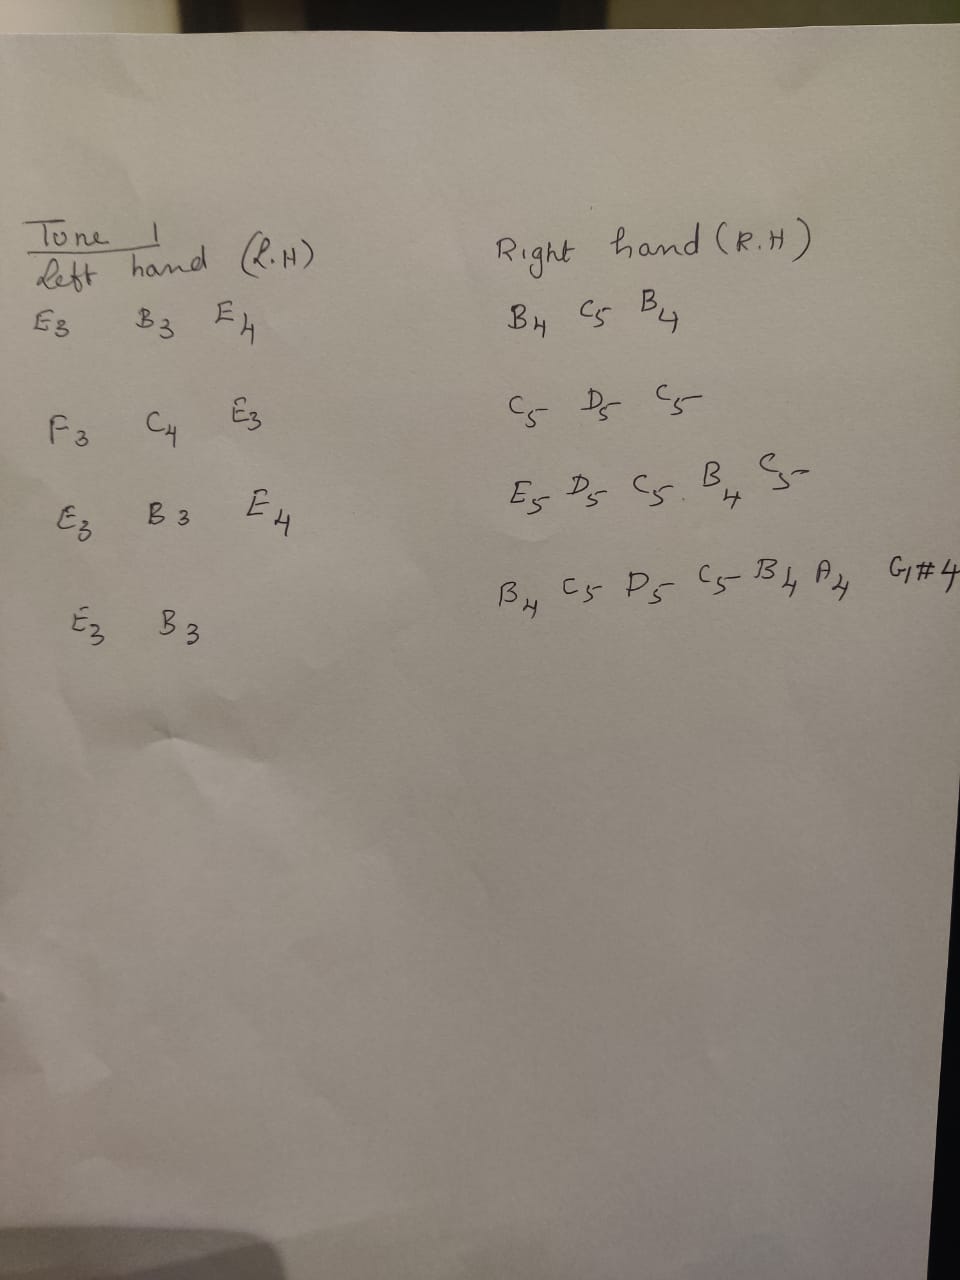 Tune 1
Left hand (L.H)
E3 B3 E4
F3 C4 E3
E3 B3 E4
E3 B3
Right hand (R.H)
B4 C5 B4
C5 D5 C5
E5 D5 C5 B4 C5
B4 C5 D5 C5 B4 A4 G#4